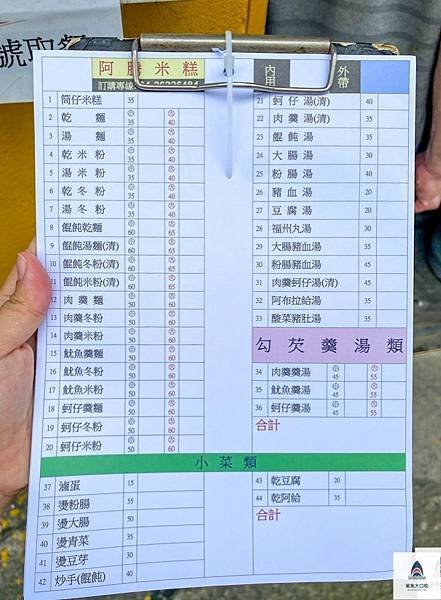 號取餐
阿騰米糕
訂購專線:04-26226481
內用
外帶
1 筒仔米糕 35
2 乾麵 ㊥35 ㊤40
3 湯麵 35 40
4 乾米粉 35 40
5 湯米粉 35 40
6 乾冬粉 35 40
7 湯冬粉 35 40
8 餛飩乾麵 60 65
9 餛飩湯麵(清) 60 65
10 餛飩冬粉(清) 60 65
11 餛飩米粉(清) 60 65
12 肉羹麵 50 60
13 肉羹冬粉 50 60
14 肉羹米粉 50 60
15 魷魚羹麵 50 60
16 魷魚冬粉 50 60
17 魷魚米粉 50 60
18 蚵仔羹麵 50 60
19 蚵仔冬粉 50 60
20 蚵仔米粉 50 60
21 蚵仔湯(清) 40
22 肉羹湯(清) 35
23 餛飩湯 35
24 大腸湯 30
25 粉腸湯 40
26 豬血湯 20
27 豆腐湯 20
28 福州丸湯 30
29 大腸豬血湯 35
30 粉腸豬血湯 45
31 肉羹蚵仔湯(清) 45
32 阿布拉給湯 35
33 酸菜豬肚湯 35
勾芡羹湯類
34 肉羹羹湯 45 55
35 魷魚羹湯 45 55
36 蚵仔羹湯 45 55
合計
小菜類
37 滷蛋 15
38 燙粉腸 55
39 燙大腸 50
40 燙青菜 35
41 燙豆芽 30
42 炒手(餛飩) 40
43 乾豆腐 20
44 乾阿給 35
合計
鯊魚大口咬